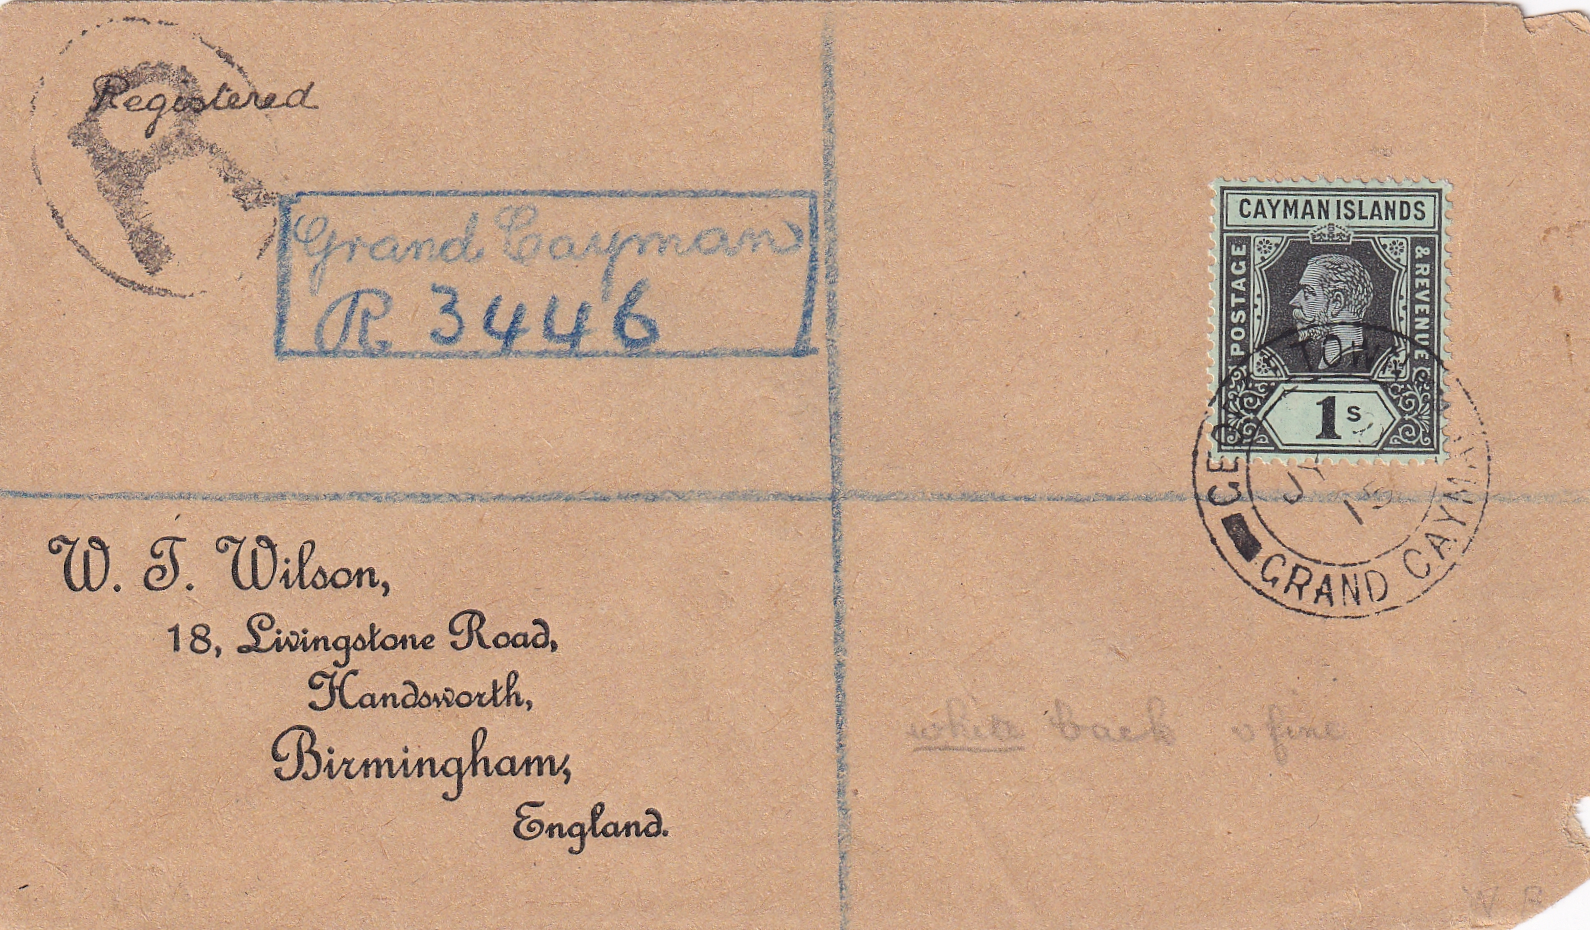 Registered
Grand Cayman
R 3446
CAYMAN ISLANDS
POSTAGE
& REVENUE
1s
TOWN
JY
GRAND CAYMAN
W. T. Wilson,
18, Livingstone Road,
Handsworth,
Birmingham,
England.
white back v fine